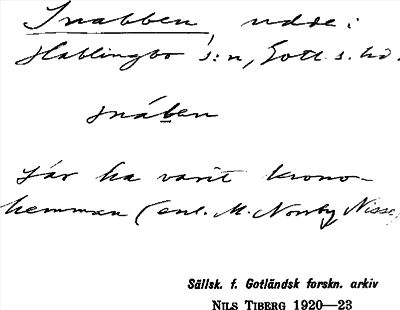 Snabben, udde i
Hablingbo s:n, Gotl. s. hd.
snáben
här ha varit krono-
hemman (enl. M. Norrby Nisse,
Sällsk. f. Gotländsk forskn. arkiv
NILS TIBERG 1920—23